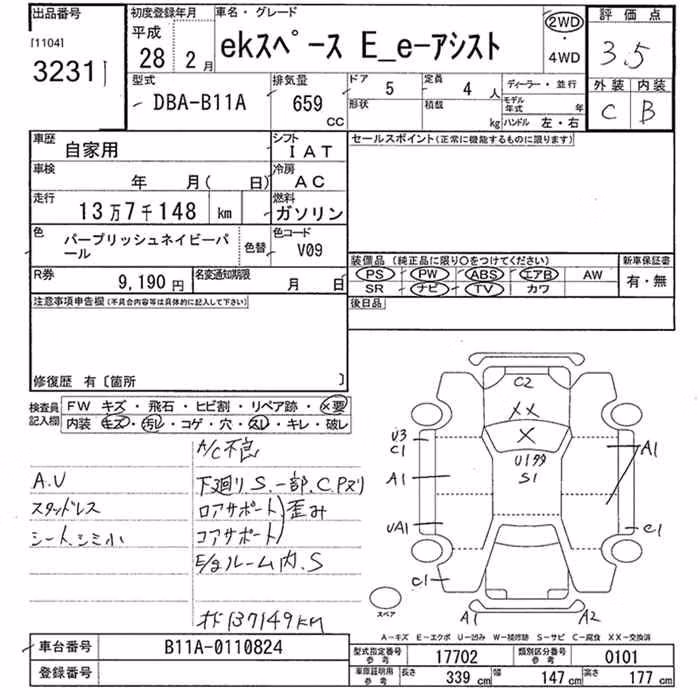 出品番号
[1104]
3231
初度登録年月
平成
28 2月
車名・グレード
ekスペース E_e-アシスト
2WD
・
4WD
評価点
3.5
外装 内装
C B
型式
DBA-B11A
排気量
659
CC
ドア 5
形状
定員 4 人
積載 kg
ディーラー・並行
モデル年式 年
ハンドル 左・右
車歴
自家用
シフト
IAT
車検
年 月( 日)
冷房
AC
走行
13万7千148 km
燃料
ガソリン
色
パープリッシュネイビーパ
ール
色替
色コード
V09
R券
9,190円
名変通知期限
月 日
セールスポイント(正常に機能するものに限ります)
装備品(純正品に限り○をつけてください)
新車保証書
PS PW ABS エアB AW
SR ナビ TV カワ
有・無
後日品
注意事項申告欄(不具合内容等は具体的に記入して下さい)
修復歴 有〔箇所 〕
検査員
記入欄
FW キズ・飛石・ヒビ割・リペア跡・×要
内装 キズ・汚レ・コゲ・穴・スレ・キレ・破レ
A/C不良
A.V
下廻リ.S.一部.C.Pズリ
スタッドレス
ロアサポート)歪み
シート.シミ小
コアサポート)
E/gルーム内.S
137149KM
C2
XX
X
U3
C1
S1
A1
A1
UA1
C1
C1
A1
A2
スペア
A-キズ E-エクボ U-凹み W-補修跡 S-サビ C-腐食 XX-交換済
車台番号
B11A-0110824
登録番号
型式指定番号
参考
17702
類別区分番号
参考
0101
車庫証明用
参考
長さ 339 cm 幅 147 cm 高さ 177 cm